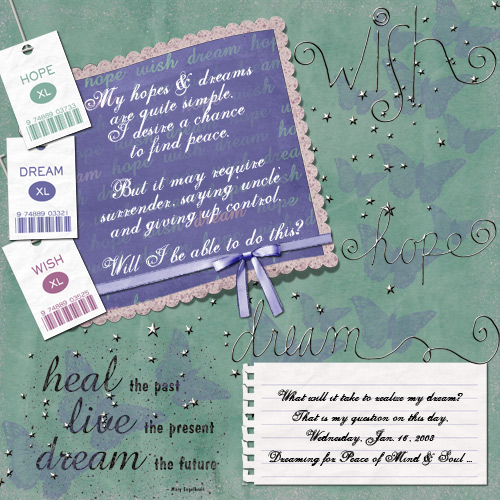 wish
HOPE
XL
9 74889 03733
DREAM
XL
9 74889 03321
WISH
XL
9 74889 03525
hope wish dream hope
My hopes & dreams
are quite simple.
I desire a chance
to find peace.
But it may require
surrender, saying uncle
and giving up control.
Will I be able to do this?
hope
dream
heal the past
live the present
dream the future
Mary Engelbreit
What will it take to realize my dream?
That is my question on this day,
Wednesday, Jan. 16, 2008
Dreaming for Peace of Mind & Soul ...